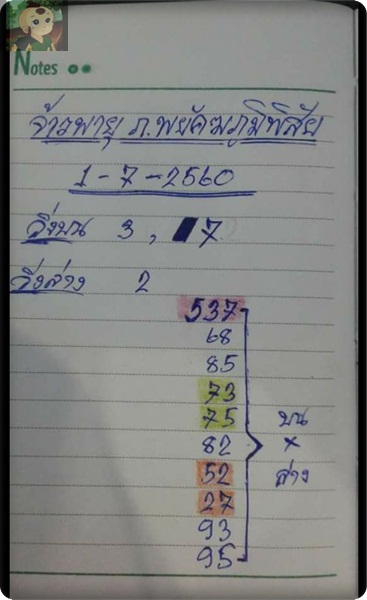 Notes
จ้าวพายุ ภ.พยัคฆภูมิพิสัย
1-7-2560
วิ่งบน 3, 7
วิ่งล่าง 2
537
68
85
73
75
82
52
27
93
95
บน
×
ล่าง